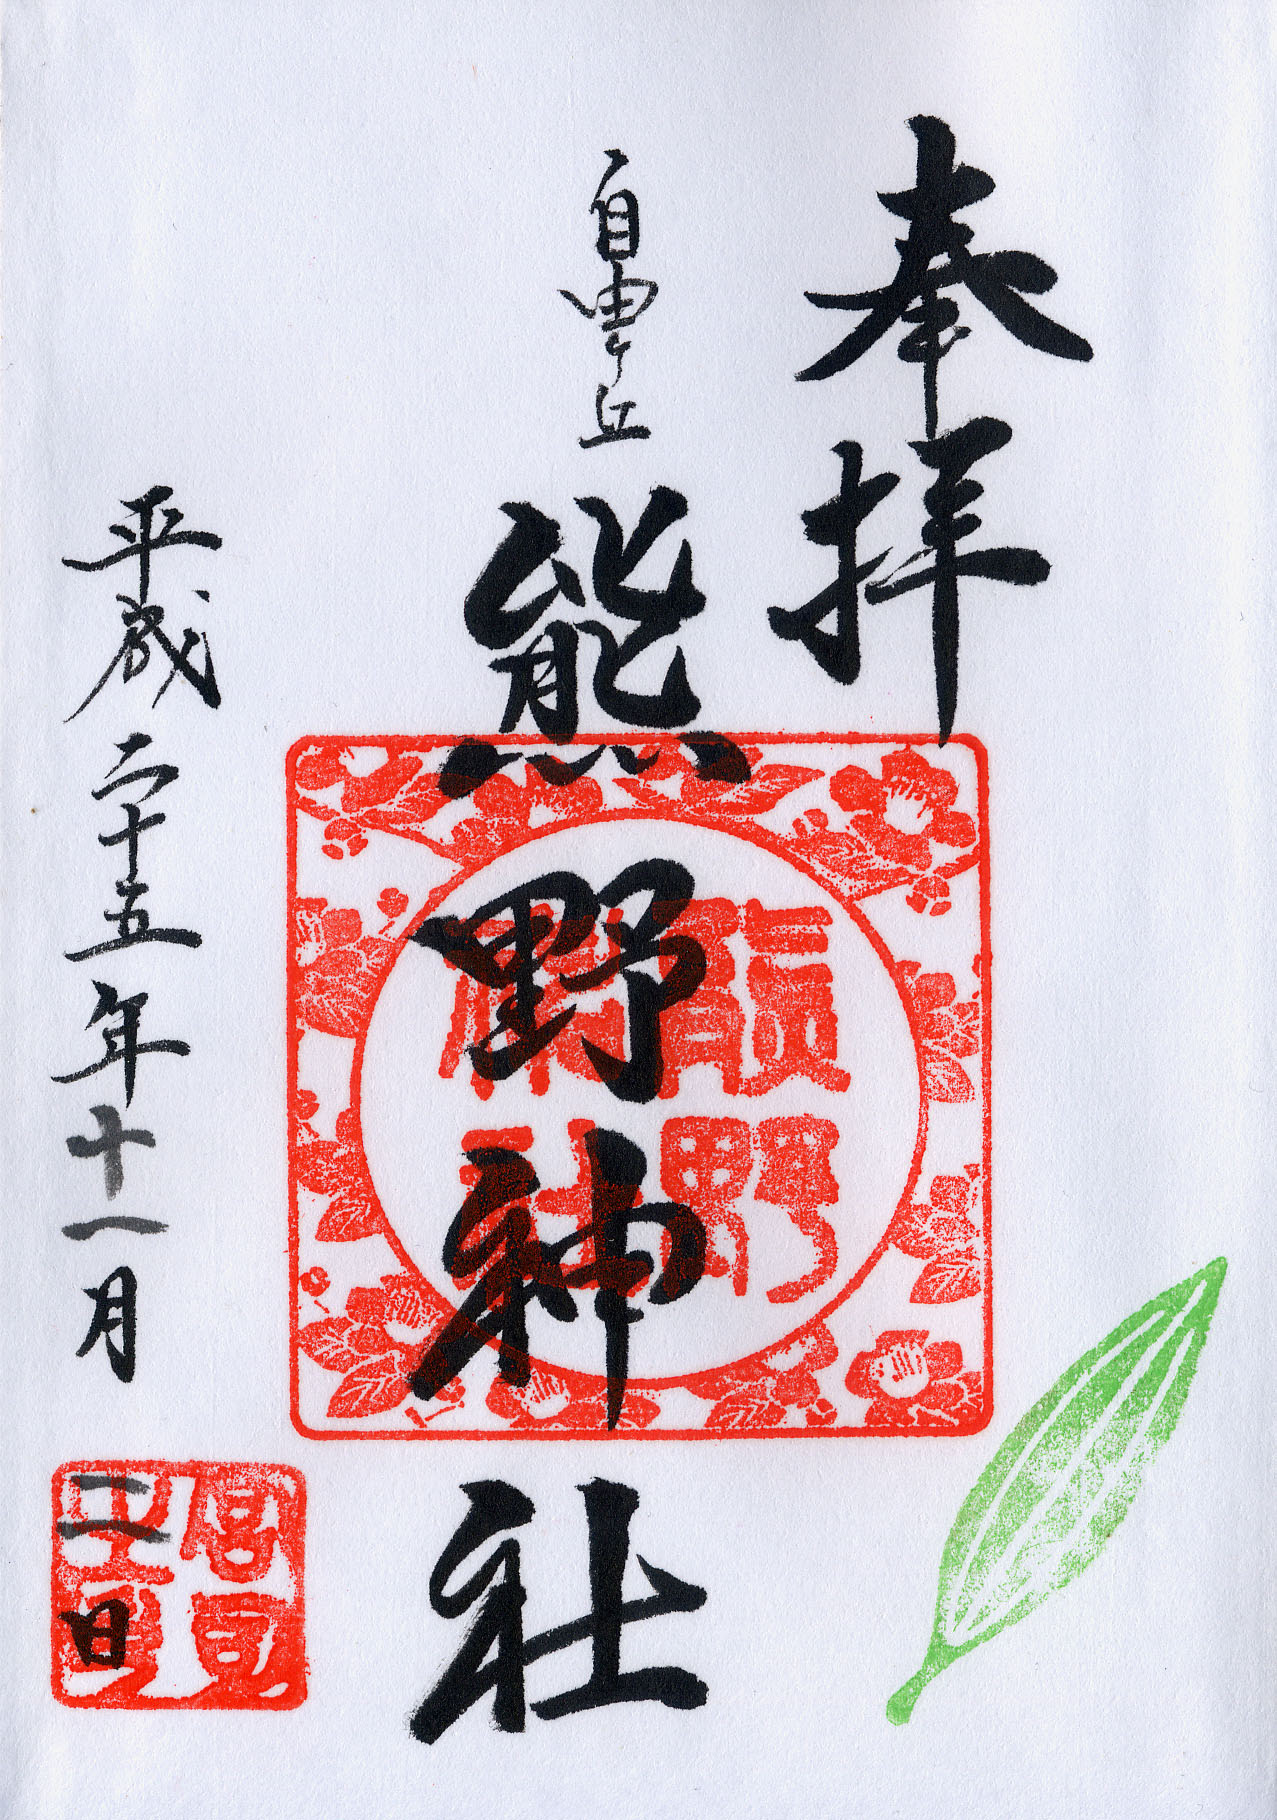 奉拝
自由ケ丘
熊野神社
熊野神社
平成二十五年十一月二日
宮司